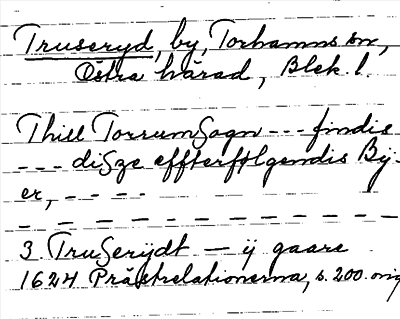 Truseryd, by, Torhamns sn,
Östra härad, Blek. l.
Thill TorrumSogn --- findis
--- diSze effterfølgendis By-
er, ----
3 TruSerÿdt — ÿ gaare
1624 Prästrelationerna, s. 200. orig